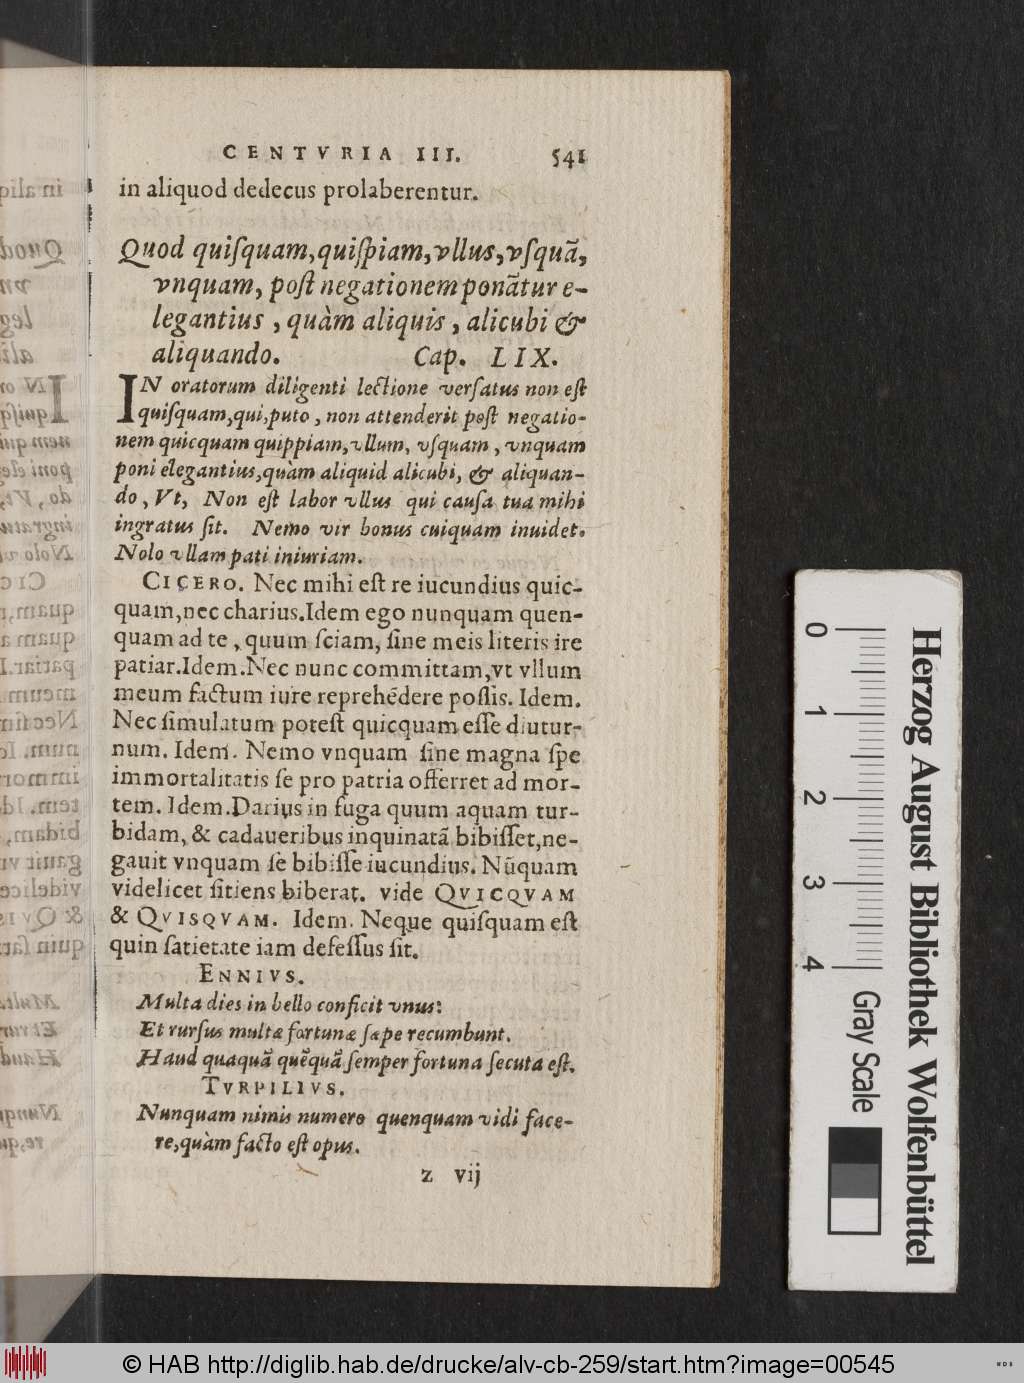 CENTVRIA III. 541
in aliquod dedecus prolaberentur.
Quod quiſquam,quiſpiam,vllus,vſquã,
vnquam, poſt negationem ponãtur e-
legantius , quàm aliquis , alicubi &
aliquando. Cap. LIX.
IN oratorum diligenti lectione verſatus non eſt
quiſquam,qui,puto , non attenderit poſt negatio-
nem quicquam quippiam,vllum, vſquam , vnquam
poni elegantius,quàm aliquid alicubi, & aliquan-
do , Vt, Non eſt labor vllus qui cauſa tua mihi
ingratus ſit. Nemo vir bonus cuiquam inuidet.
Nolo vllam pati iniuriam.
CICERO. Nec mihi eſt re iucundius quic-
quam,nec charius.Idem ego nunquam quen-
quam ad te , quum ſciam, ſine meis literis ire
patiar.Idem.Nec nunc committam,vt vllum
meum factum iure reprehẽdere poſſis. Idem.
Nec ſimulatum poteſt quicquam eſſe diutur-
num. Idem. Nemo vnquam ſine magna ſpe
immortalitatis ſe pro patria offerret ad mor-
tem. Idem.Darius in fuga quum aquam tur-
bidam, & cadaueribus inquinatã bibiſſet,ne-
gauit vnquam ſe bibiſſe iucundius. Nũquam
videlicet ſitiens biberat. vide QVICQVAM
& QVISQVAM. Idem. Neque quiſquam eſt
quin ſatietate iam defeſſus ſit.
ENNIVS.
Multa dies in bello conficit vnus:
Et rurſus multæ fortunæ ſæpe recumbunt.
Haud quaquã quẽquã ſemper fortuna ſecuta eſt.
TVRPILIVS.
Nunquam nimis numero quenquam vidi face-
re,quàm facto eſt opus.
z vij
0 1 2 3 4
Herzog August Bibliothek Wolfenbüttel
Gray Scale
© HAB http://diglib.hab.de/drucke/alv-cb-259/start.htm?image=00545